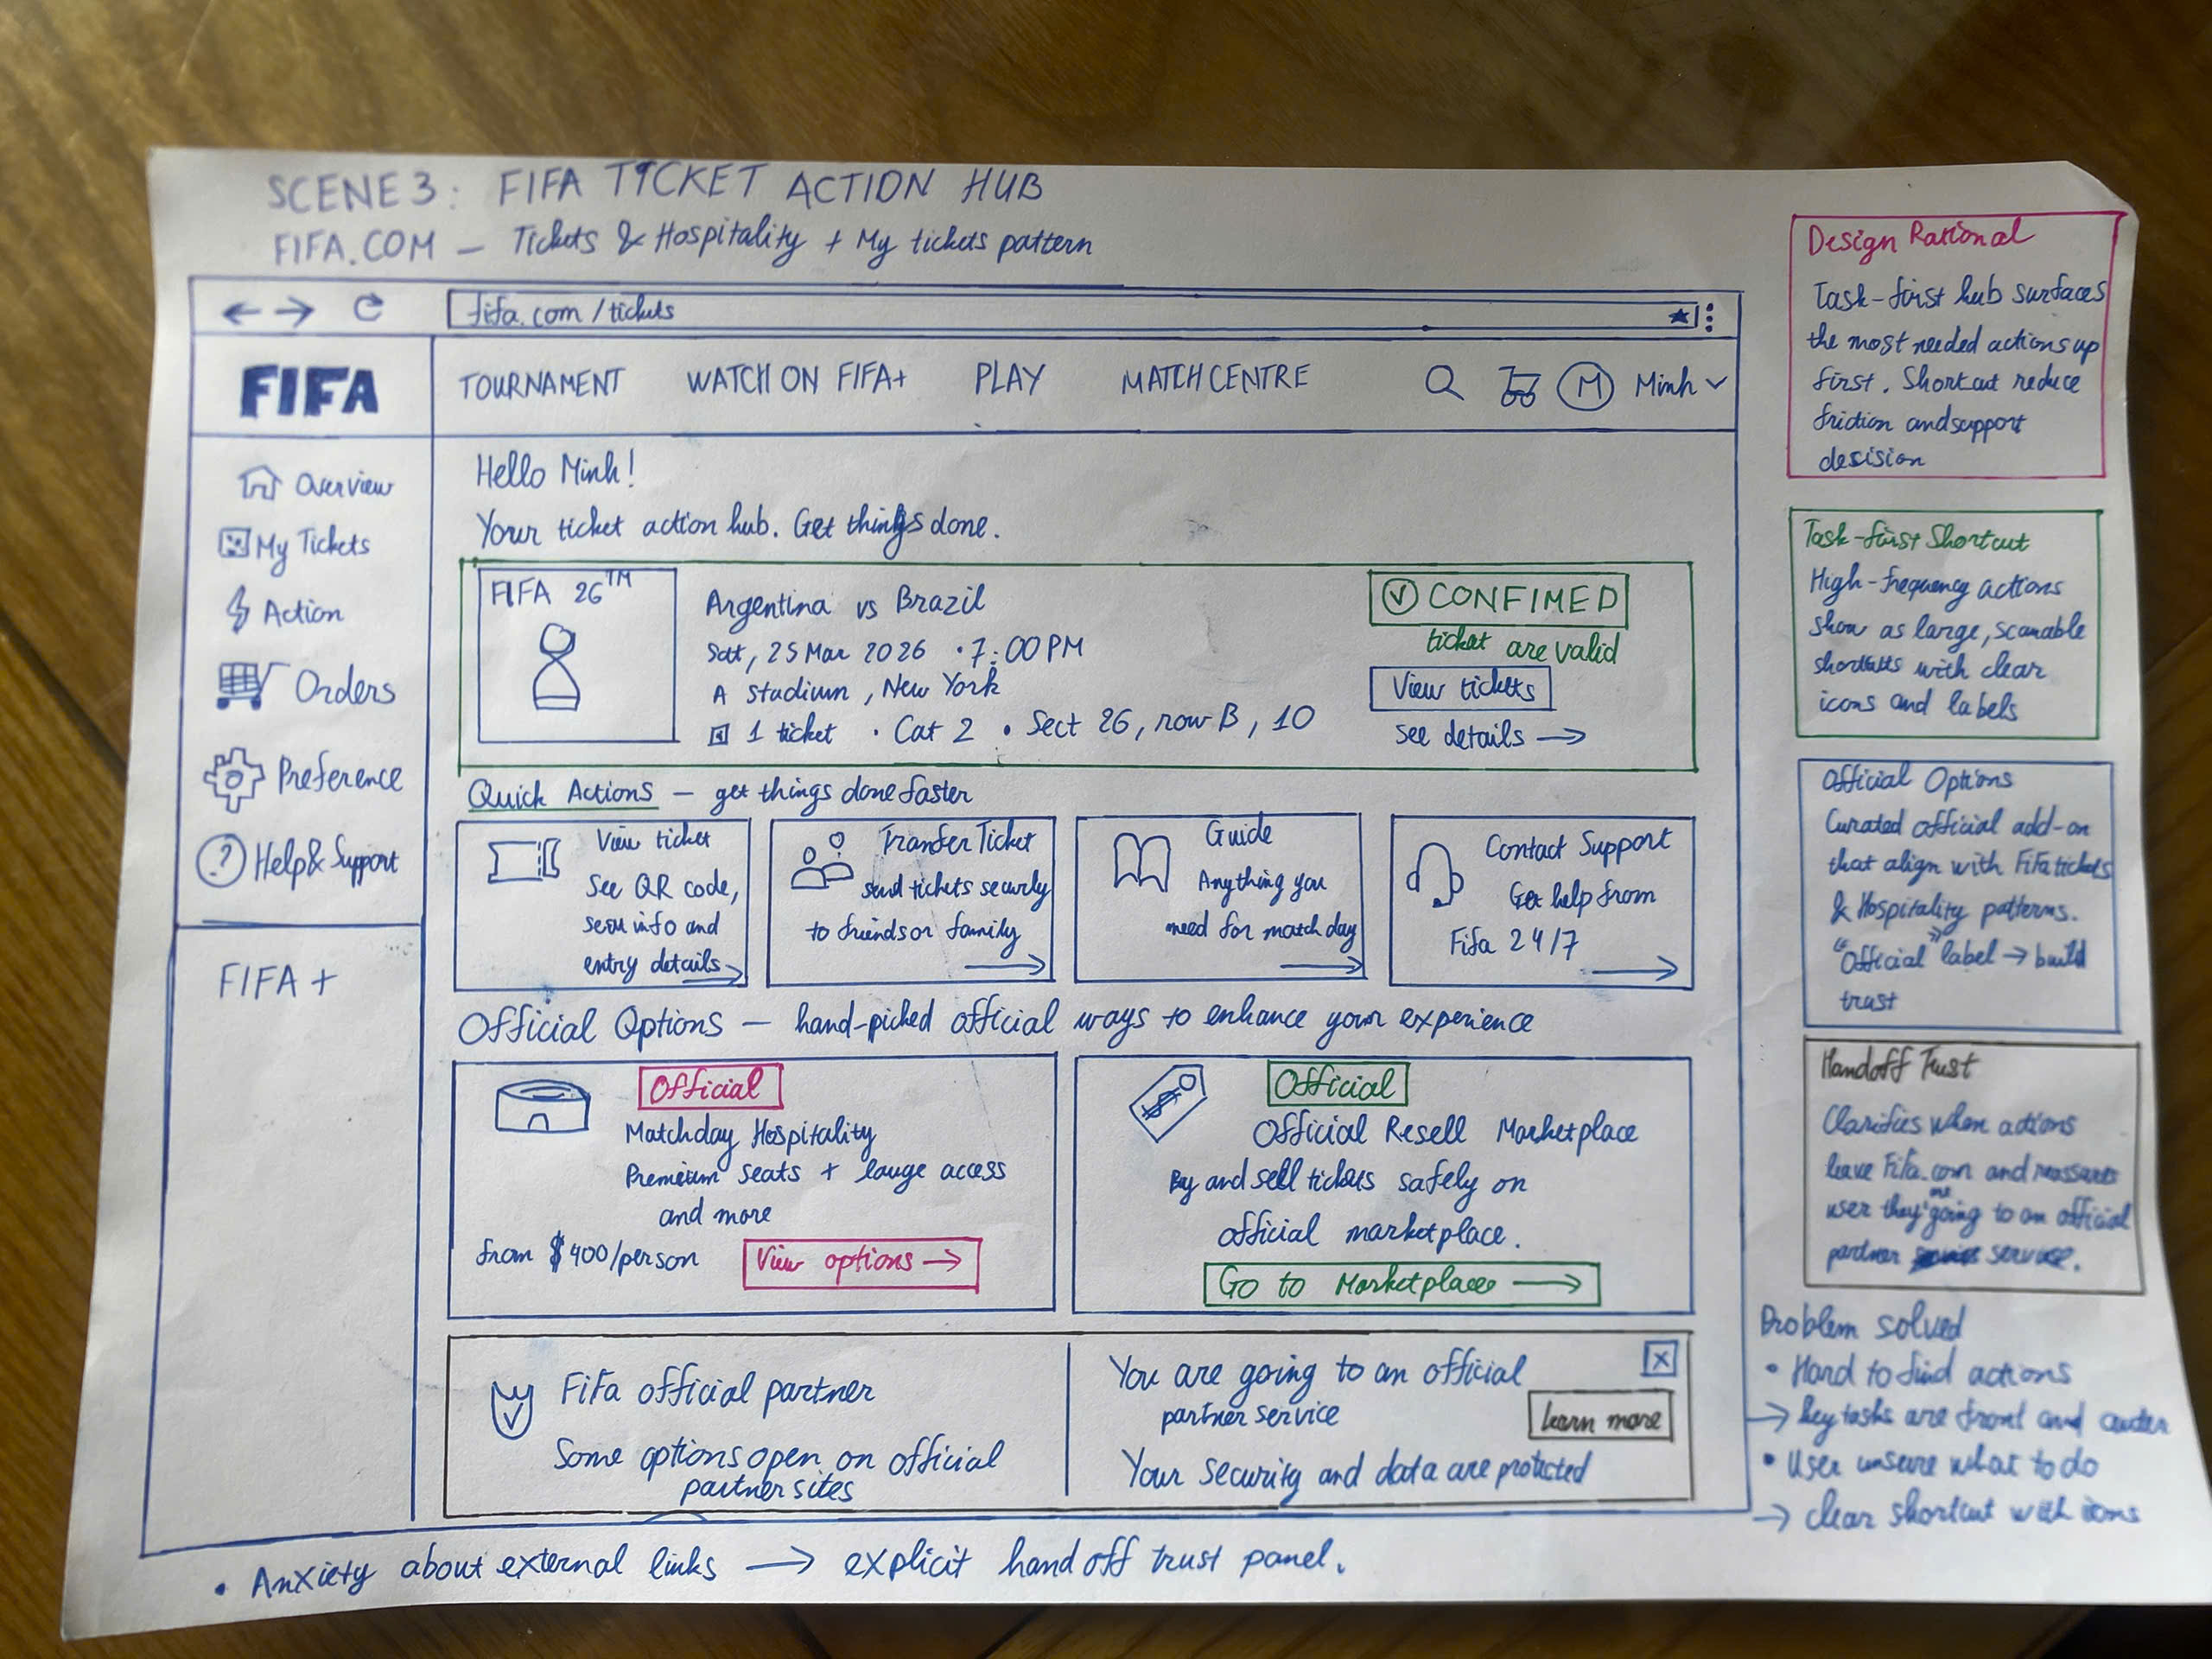 SCENE 3: FIFA TICKET ACTION HUB
FIFA.COM — Tickets & Hospitality + My tickets pattern
fifa.com/tickets
FIFA
TOURNAMENT WATCH ON FIFA+ PLAY MATCH CENTRE M Minh
Overview
My Tickets
Action
Orders
Preference
Help & Support
FIFA+
Hello Minh!
Your ticket action hub. Get things done.
FIFA 26™
Argentina vs Brazil
Sat, 25 Mar 2026 • 7:00 PM
A stadium, New York
1 ticket • Cat 2 • Sect 26, row B, 10
CONFIMED
ticket are valid
View tickets
see details →
Quick Actions — get things done faster
View ticket
See QR code,
info and
entry details →
Transfer Ticket
send tickets securly
to friends or family
→
Guide
Anything you
need for match day
→
Contact Support
Get help from
Fifa 24/7
→
Official Options — hand-picked official ways to enhance your experience
Official
Matchday Hospitality
Premium seats + lauge access
and more
from $400/person
View options →
Official
$
Official Resell Marketplace
By and sell tickets safely on
official marketplace.
Go to Marketplace →
FiFa official partner
Some options open on official
partner sites
You are going to an official
partner service
X
Learn more
Your security and data are protected
• Anxiety about external links → explicit hand off trust panel.
Design Rational
Task-first hub surfaces
the most needed actions up
first. Shortcut reduce
friction and support
desision
Task-first Shortcut
High-frequency actions
show as large, scanable
with clear
icons and labels
Official Options
Curated official add-on
that align with FiFa tickets
& Hospitality patterns.
"Official" label → build
trust
Handoff Trust
Clarifies when actions
leave Fifa.com and reassures
user they are going to an official
partner service.
Problem solved
• Hard to find actions
→ key tasks are front and center
• User unsure what to do
→ clear shortcut with icons